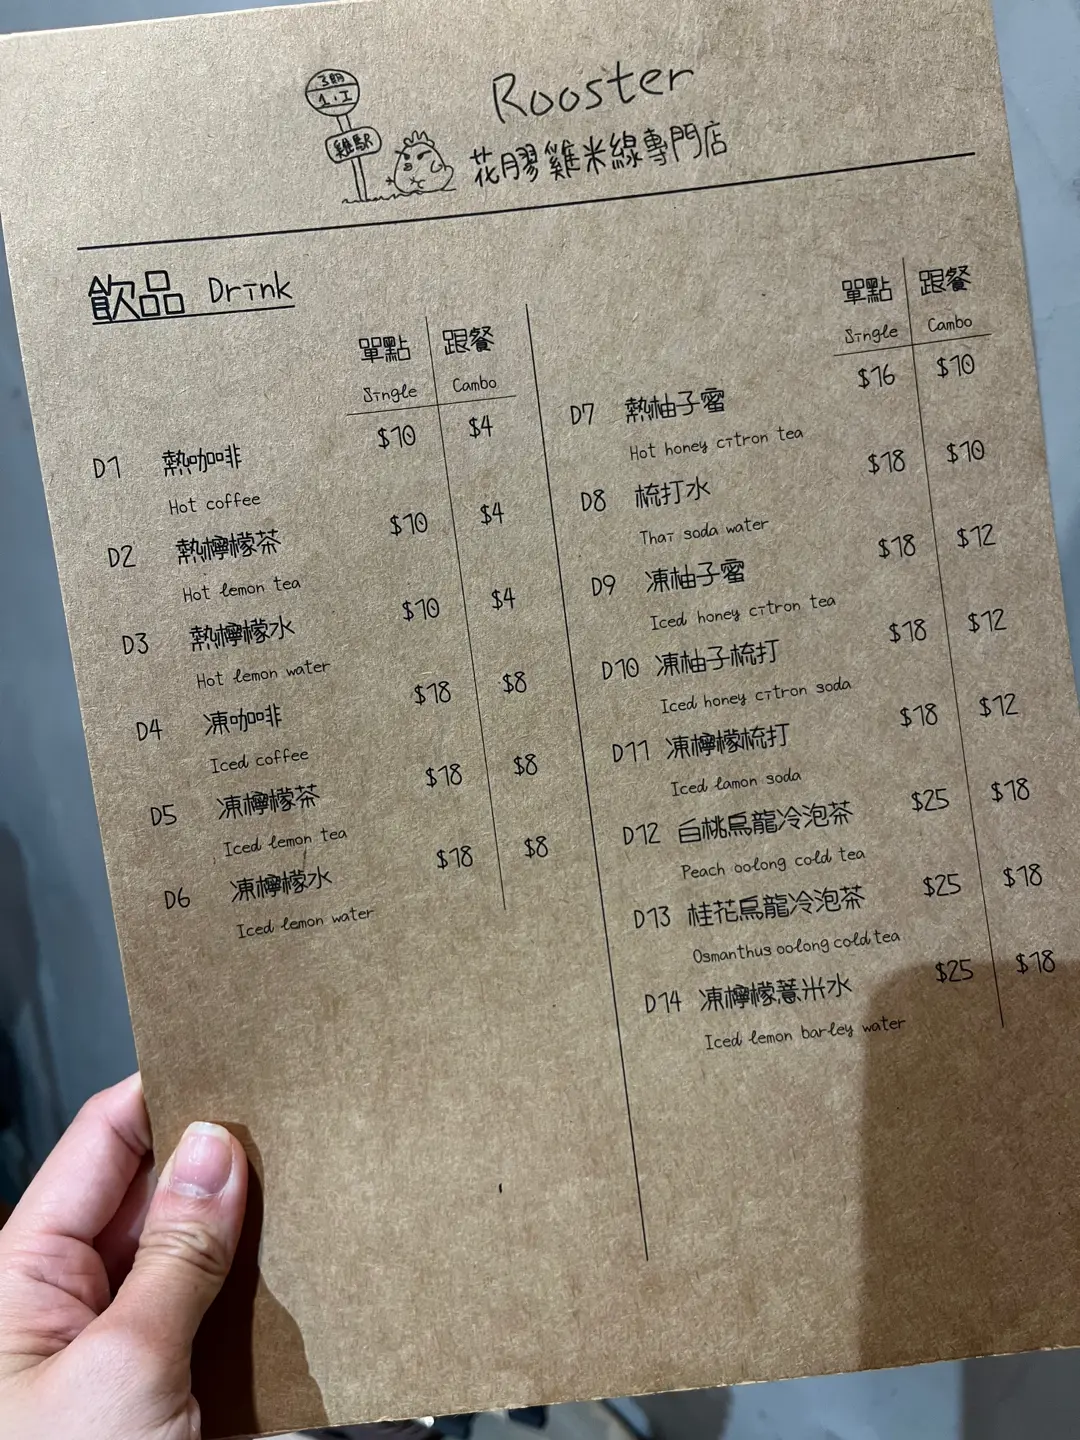 3朗
1.I
雞駅
Rooster
花膠雞米線專門店
飲品 Drink
單點 跟餐
Single Cambo
D1 熱咖啡 $10 $4
Hot coffee
D2 熱檸檬茶 $10 $4
Hot lemon tea
D3 熱檸檬水 $10 $4
Hot lemon water
D4 凍咖啡 $18 $8
Iced coffee
D5 凍檸檬茶 $18 $8
Iced lemon tea
D6 凍檸檬水 $18 $8
Iced lemon water
單點 跟餐
Single Cambo
D7 熱柚子蜜 $16 $10
Hot honey citron tea
D8 梳打水 $18 $10
Thai soda water
D9 凍柚子蜜 $18 $12
Iced honey citron tea
D10 凍柚子梳打 $18 $12
Iced honey citron soda
D11 凍檸檬梳打 $18 $12
Iced lamon soda
D12 白桃烏龍冷泡茶 $25 $18
Peach oolong cold tea
D13 桂花烏龍冷泡茶 $25 $18
Osmanthus oolong cold tea
D14 凍檸檬薏米水 $25 $18
Iced lemon barley water